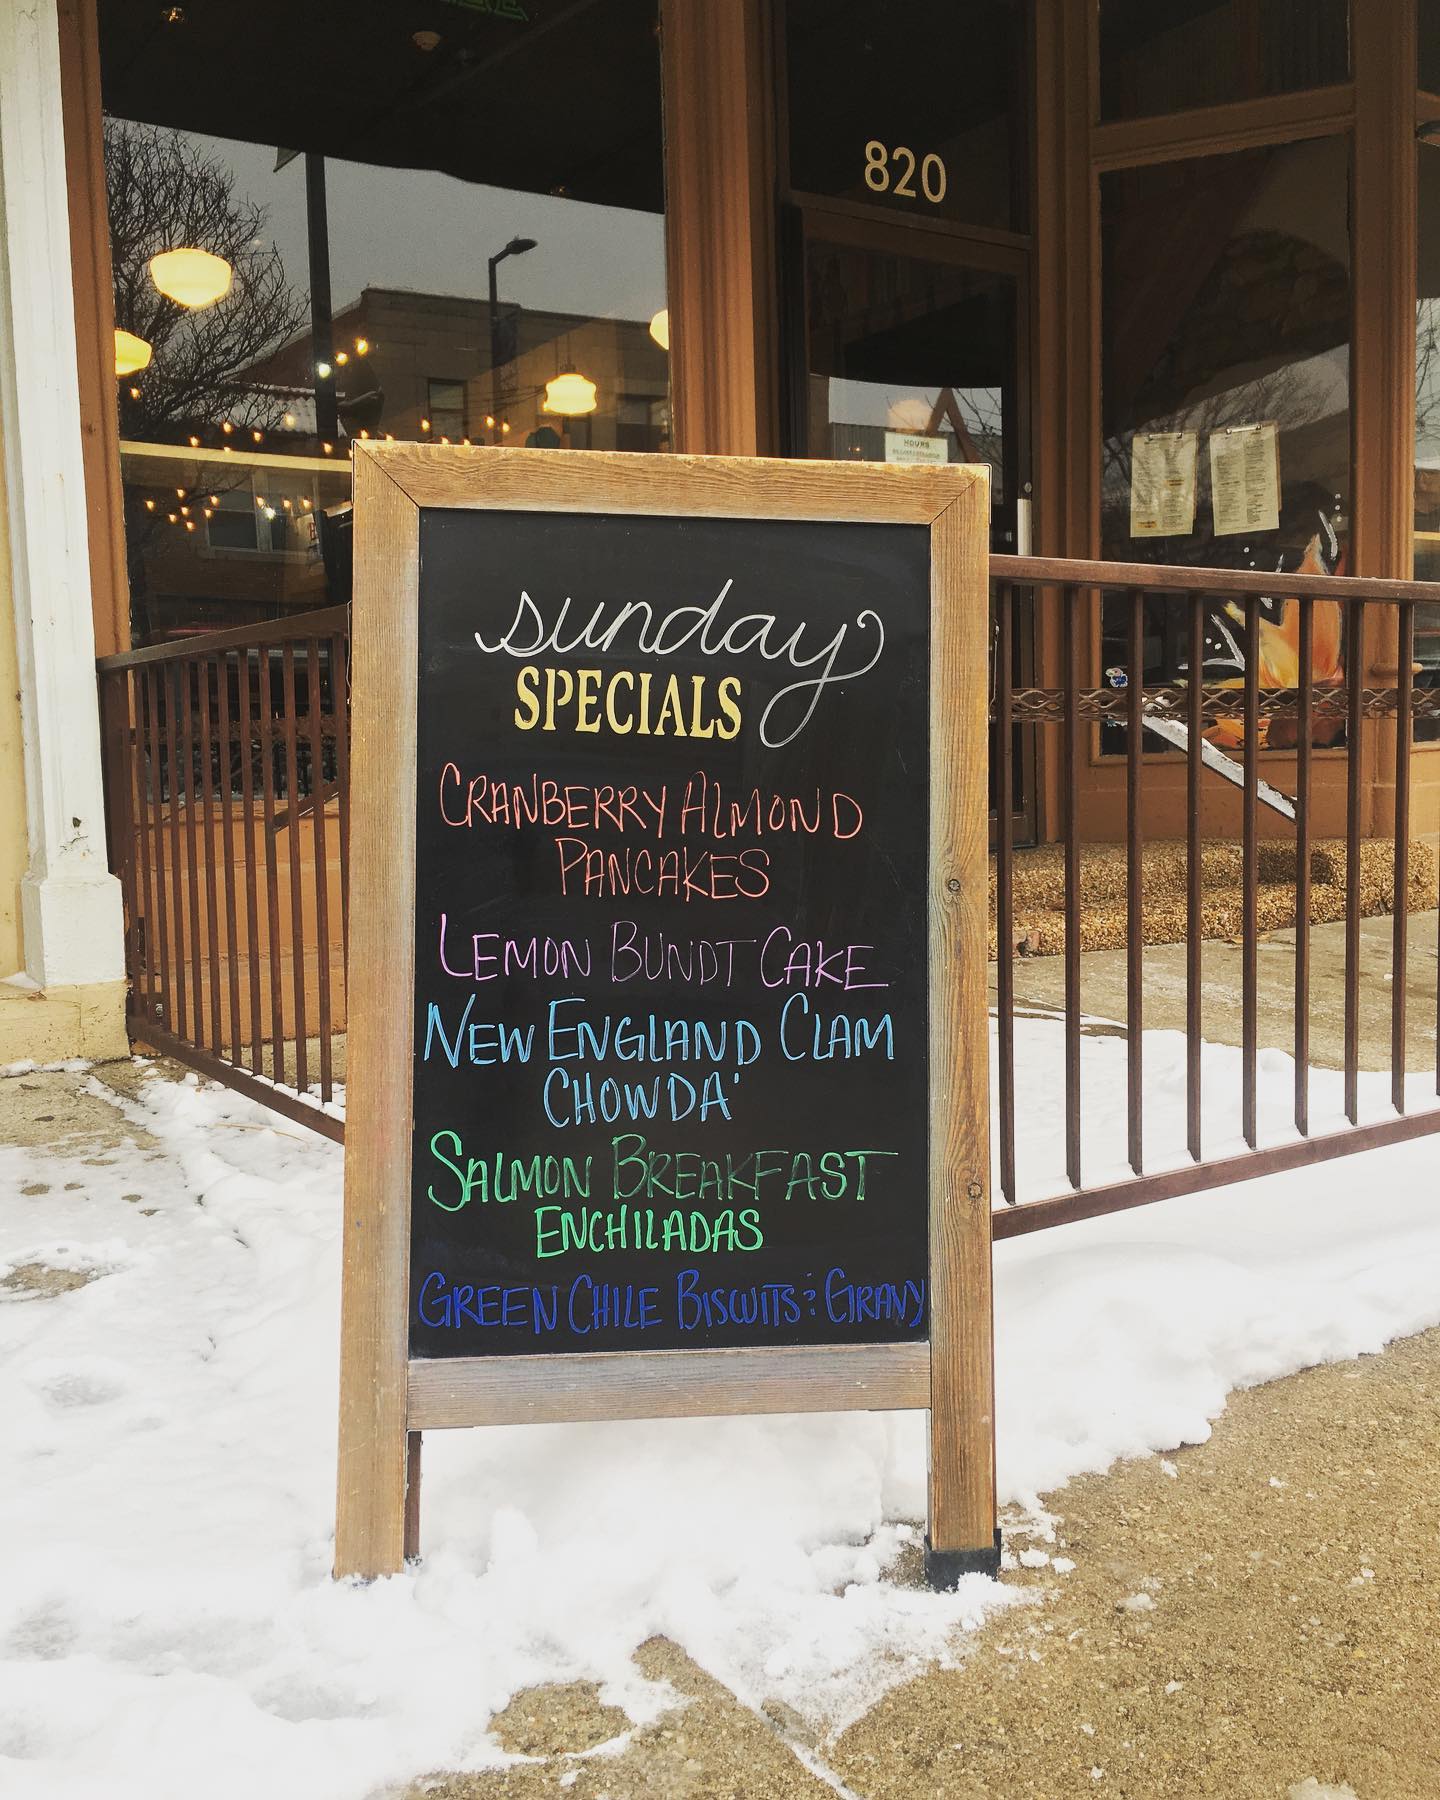 820
HOURS
sunday
SPECIALS
CRANBERRY ALMOND
PANCAKES
LEMON BUNDT CAKE
NEW ENGLAND CLAM
CHOWDA'
SALMON BREAKFAST
ENCHILADAS
GREEN CHILE BISCUITS & GRAVY